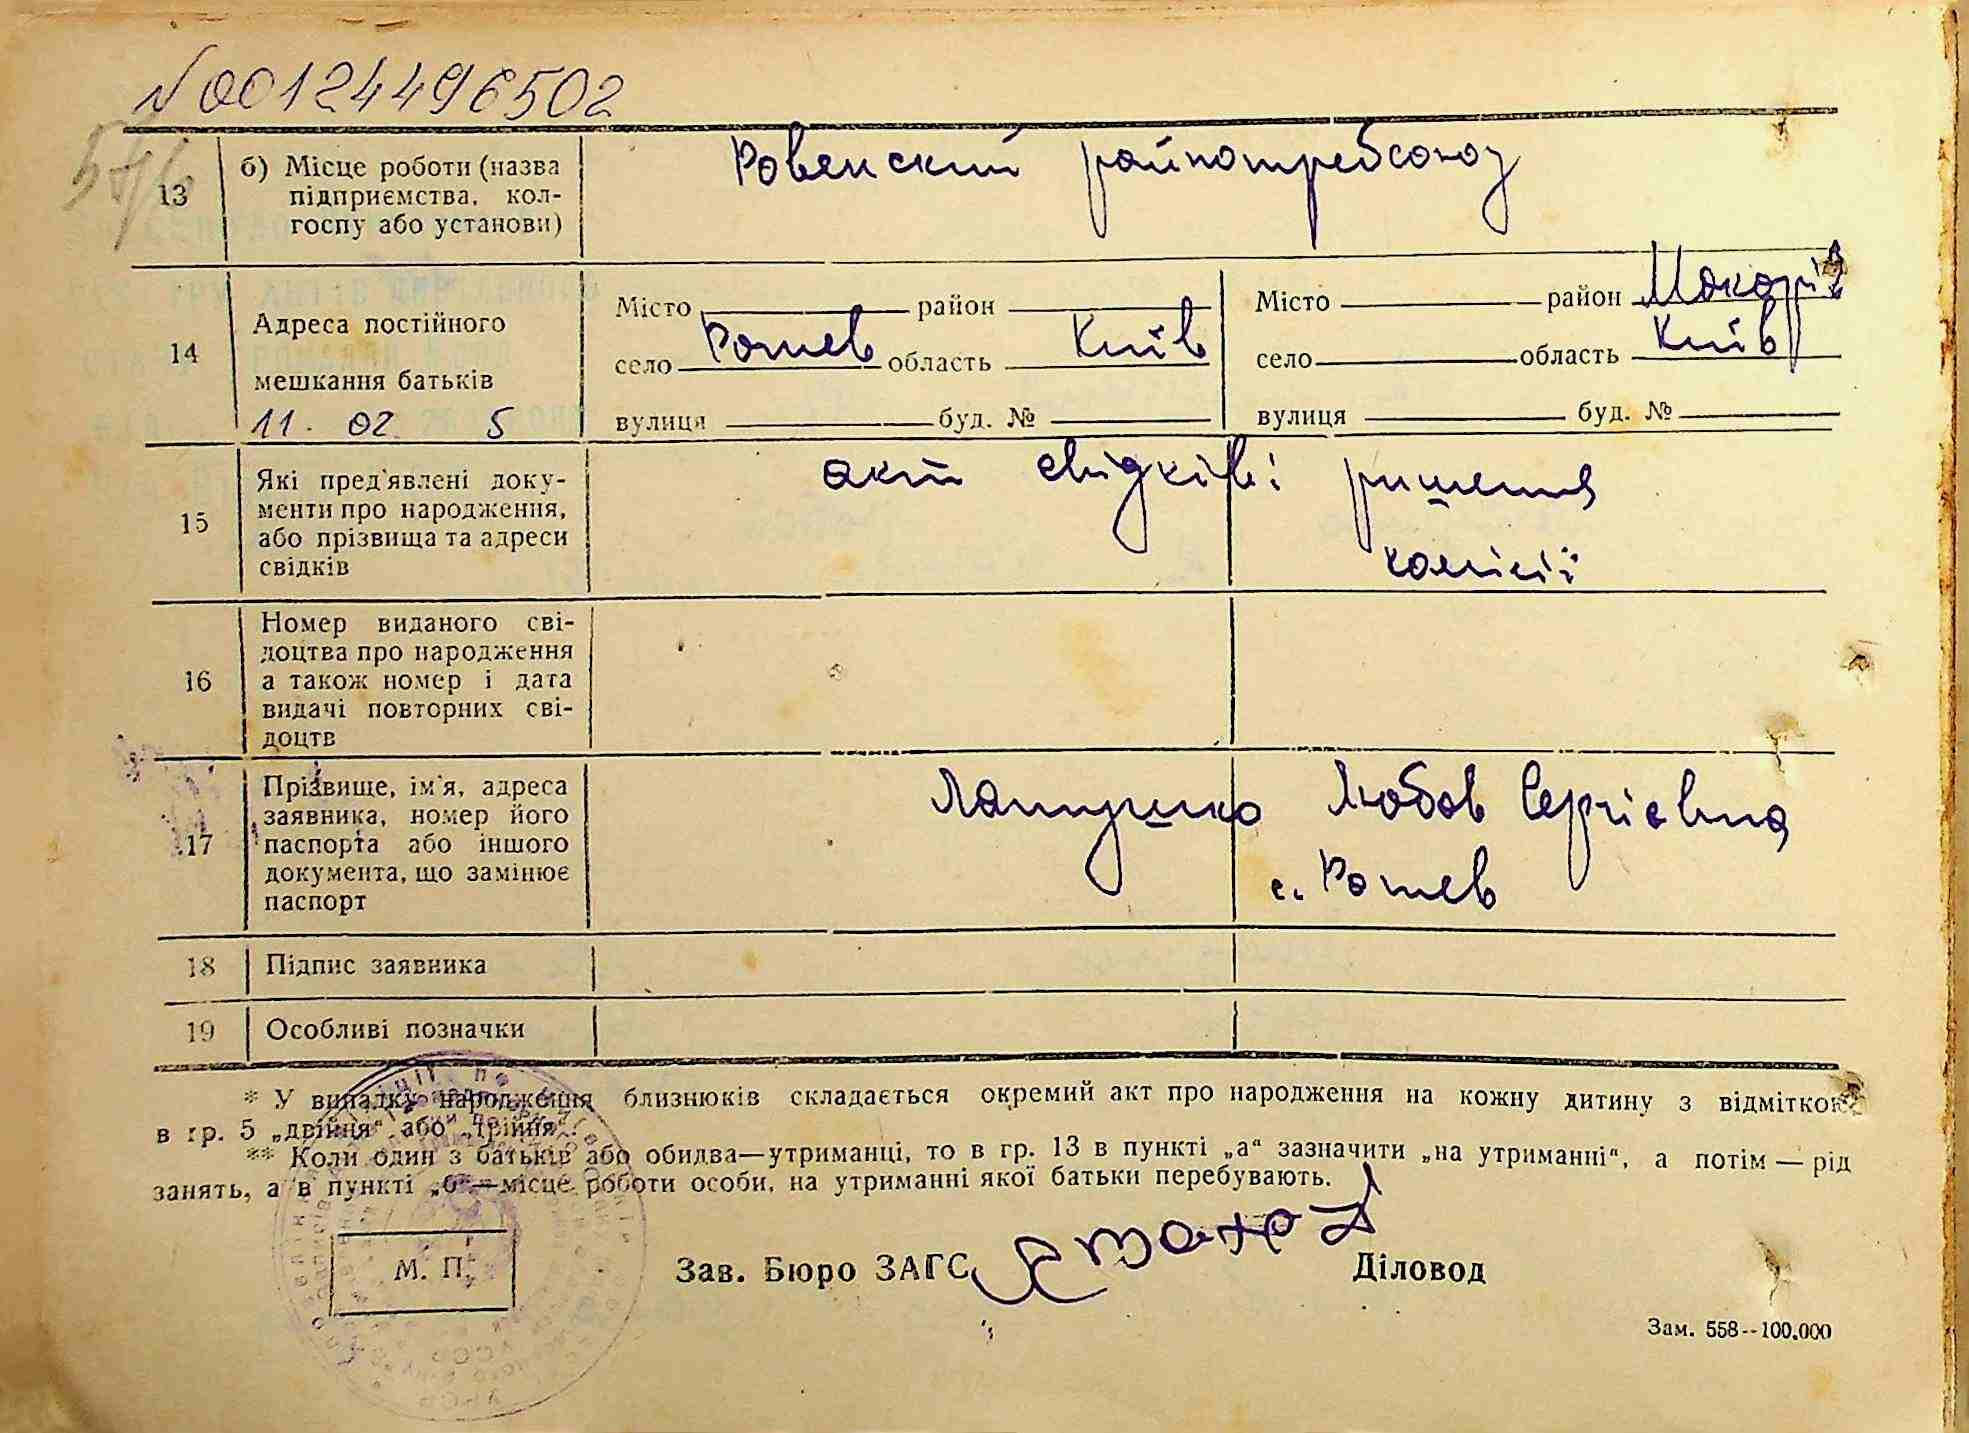 N 00124496502
13
б) Місце роботи (назва
підприємства, кол-
госпу або установи)
Ровенский райпотребсоюз
14
Адреса постійного
мешкання батьків
11. 02. 5
Місто район
село Рожев область Київ
вулиця буд. №
Місто район Макарів
село область Київ
вулиця буд. №
15
Які пред'явлені доку-
менти про народження,
або прізвища та адреси
свідків
акт свідків і ришення
комісії
16
Номер виданого сві-
доцтва про народження
а також номер і дата
видачі повторних сві-
доцтв
17
Прізвище, ім'я, адреса
заявника, номер його
паспорта або іншого
документа, що замінює
паспорт
Любов Сергієвна
с. Рожев
18
Підпис заявника
19
Особливі позначки
* У випадку народження близнюків складається окремий акт про народження на кожну дитину з відміткою
в гр. 5 „двійня“ або „трійня“.
** Коли один з батьків або обидва—утриманці, то в гр. 13 в пункті „а“ зазначити „на утриманні“, а потім — рід
занять, а в пункті „б“—місце роботи особи, на утриманні якої батьки перебувають.
М. П.
Зав. Бюро ЗАГС
Діловод
Зам. 558--100.000